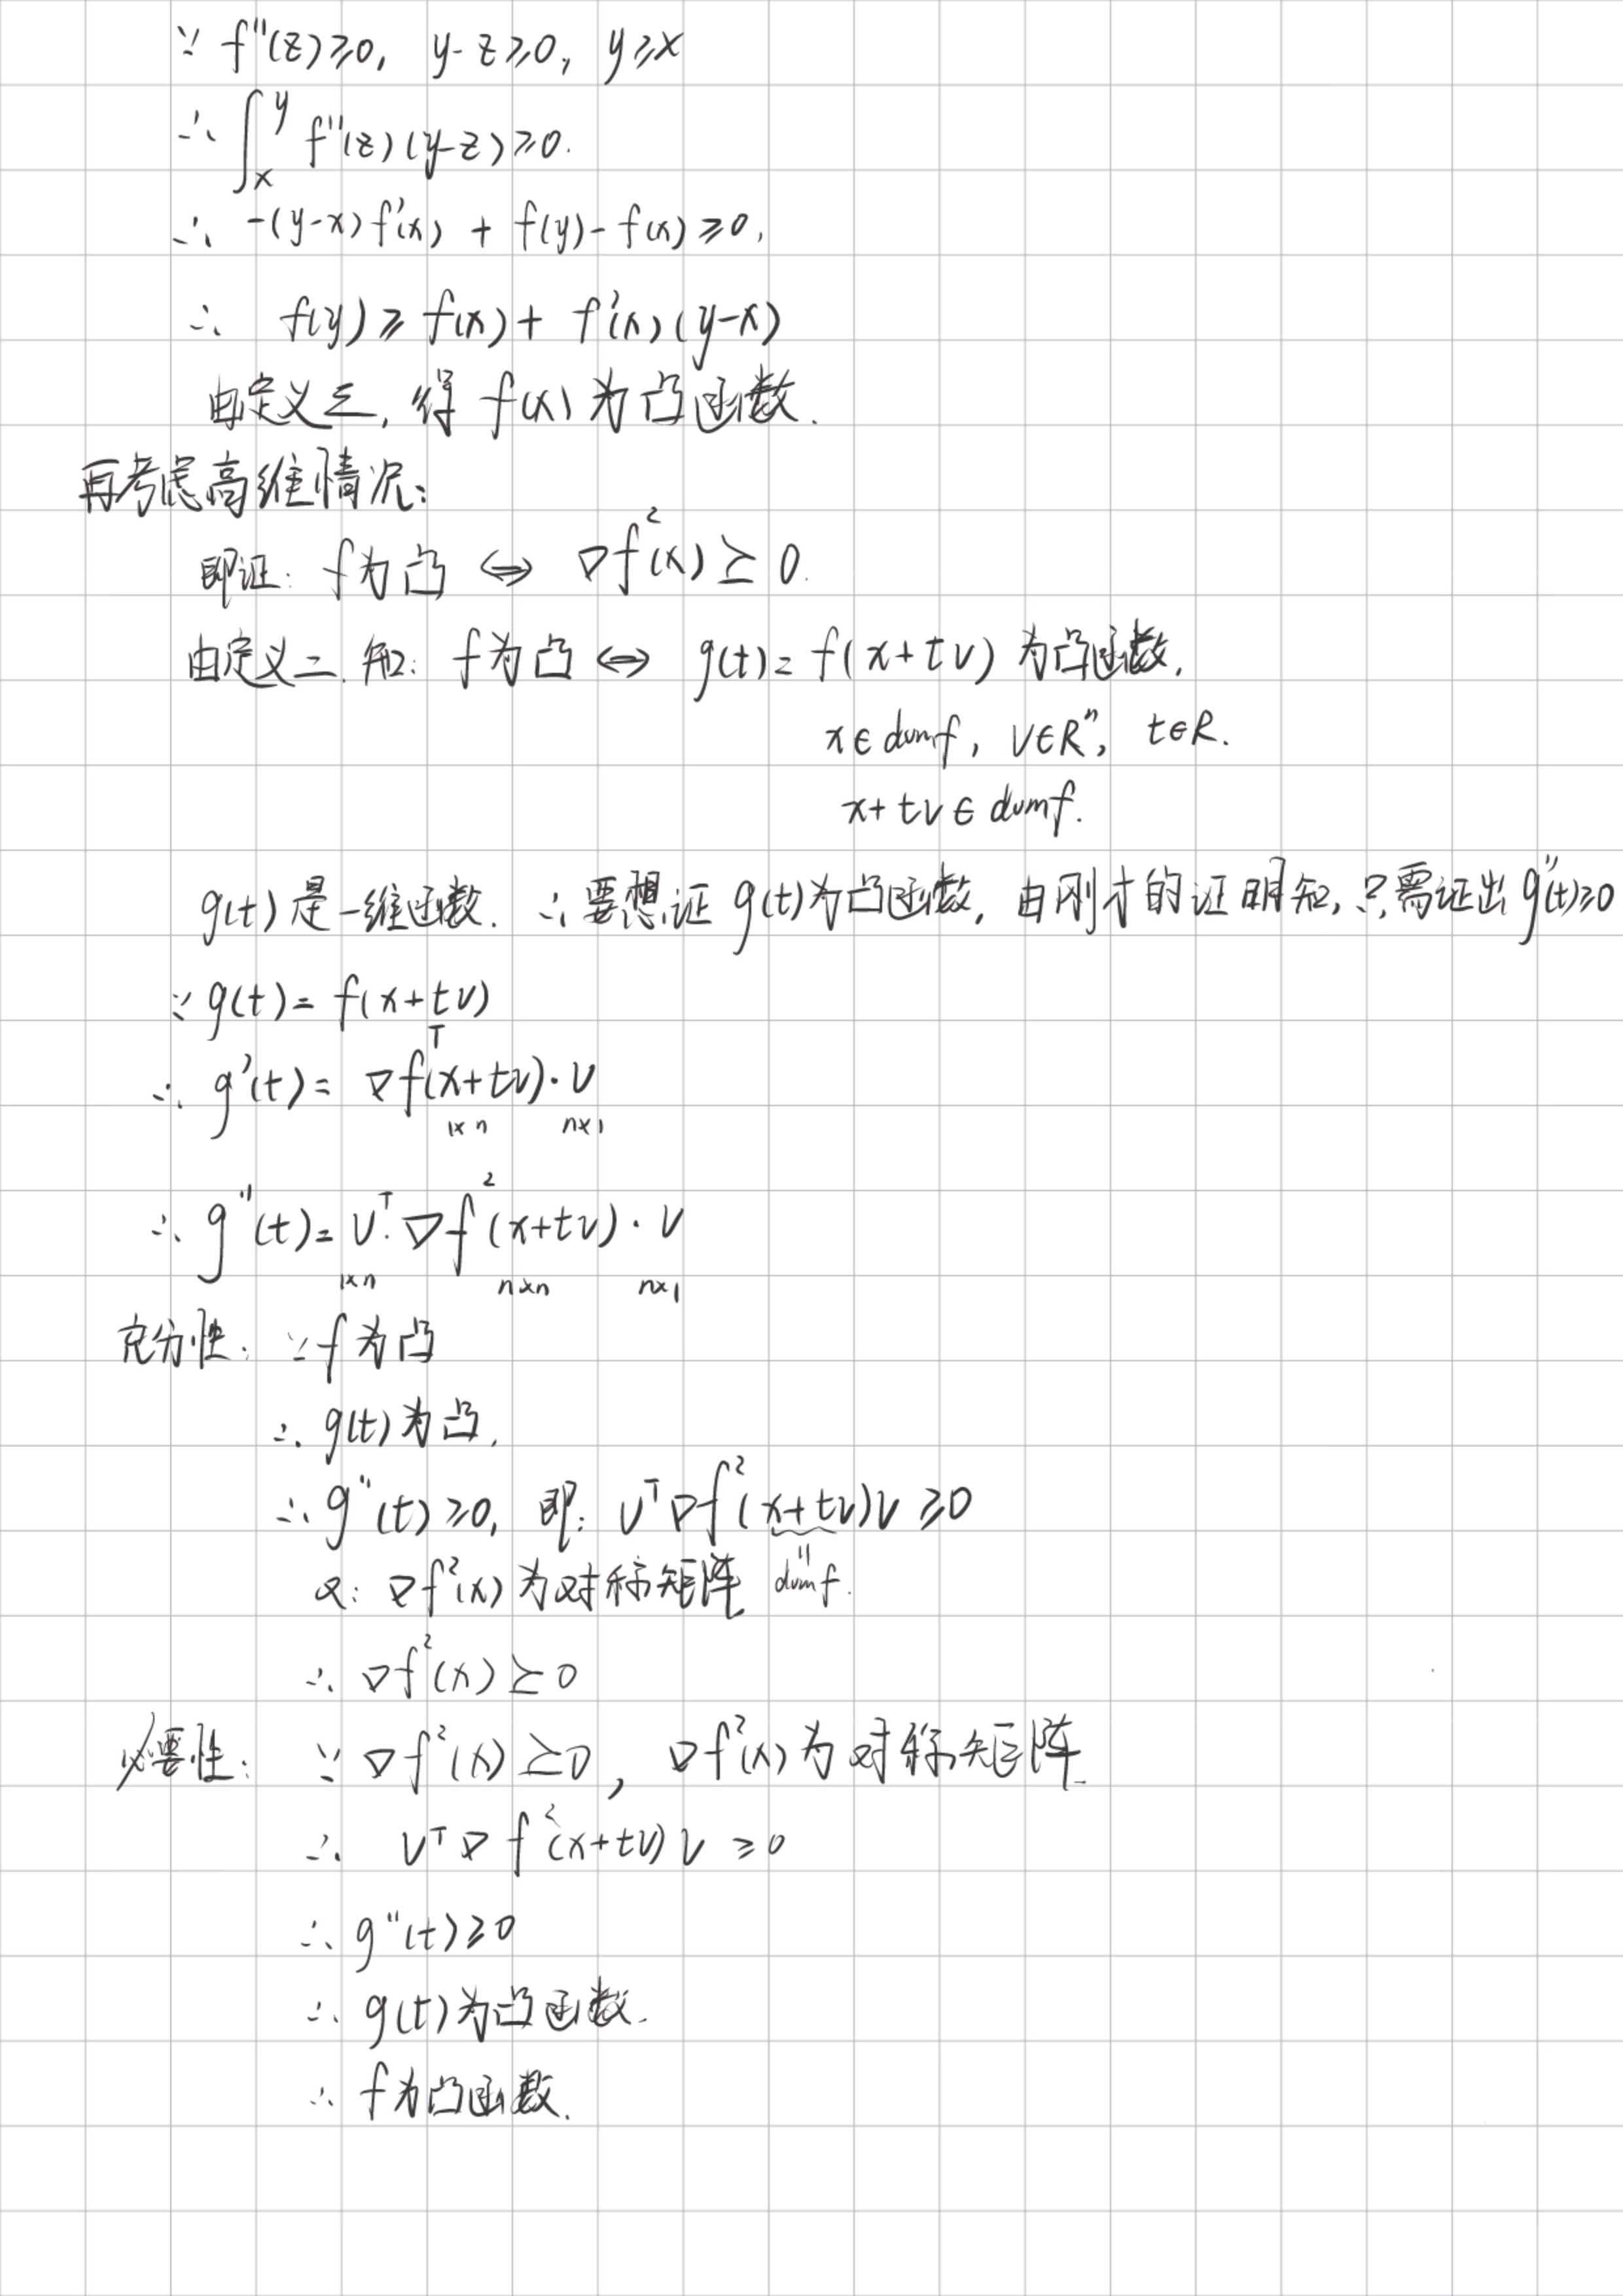 ∵ f''(z)≥0, y-z≥0, y≥x
∴ ∫_x^y f''(z)(y-z)≥0.
∴ -(y-x)f'(x) + f(y)-f(x)≥0,
∴ f(y)≥f(x)+ f'(x)(y-x)
由定义三, 得 f(x)为凸函数.
再考虑高维情况:
即证: f为凸 ⇔ ∇f²(x)⪰0.
由定义二. 知: f为凸 ⇔ g(t)= f(x+tv) 为凸函数,
x∈domf, v∈Rⁿ, t∈R.
x+tv∈domf.
g(t)是一维函数. ∴要想证g(t)为凸函数, 由刚才的证明知, 只需证出g''(t)≥0
∵ g(t)= f(x+tv)
∴ g'(t)= ∇f(x+tv)ᵀ·v
1×n n×1
∴ g''(t)= vᵀ·∇f²(x+tv)·v
1×n n×n n×1
充分性: ∵f为凸
∴ g(t)为凸.
∴ g''(t)≥0, 即: vᵀ∇f²(x+tv)v≥0
又: ∇f²(x)为对称矩阵 domf.
∴ ∇f²(x)⪰0
必要性: ∵ ∇f²(x)⪰0, ∇f²(x)为对称矩阵
∴ vᵀ∇f²(x+tv)v≥0
∴ g''(t)≥0
∴ g(t)为凸函数.
∴ f为凸函数.